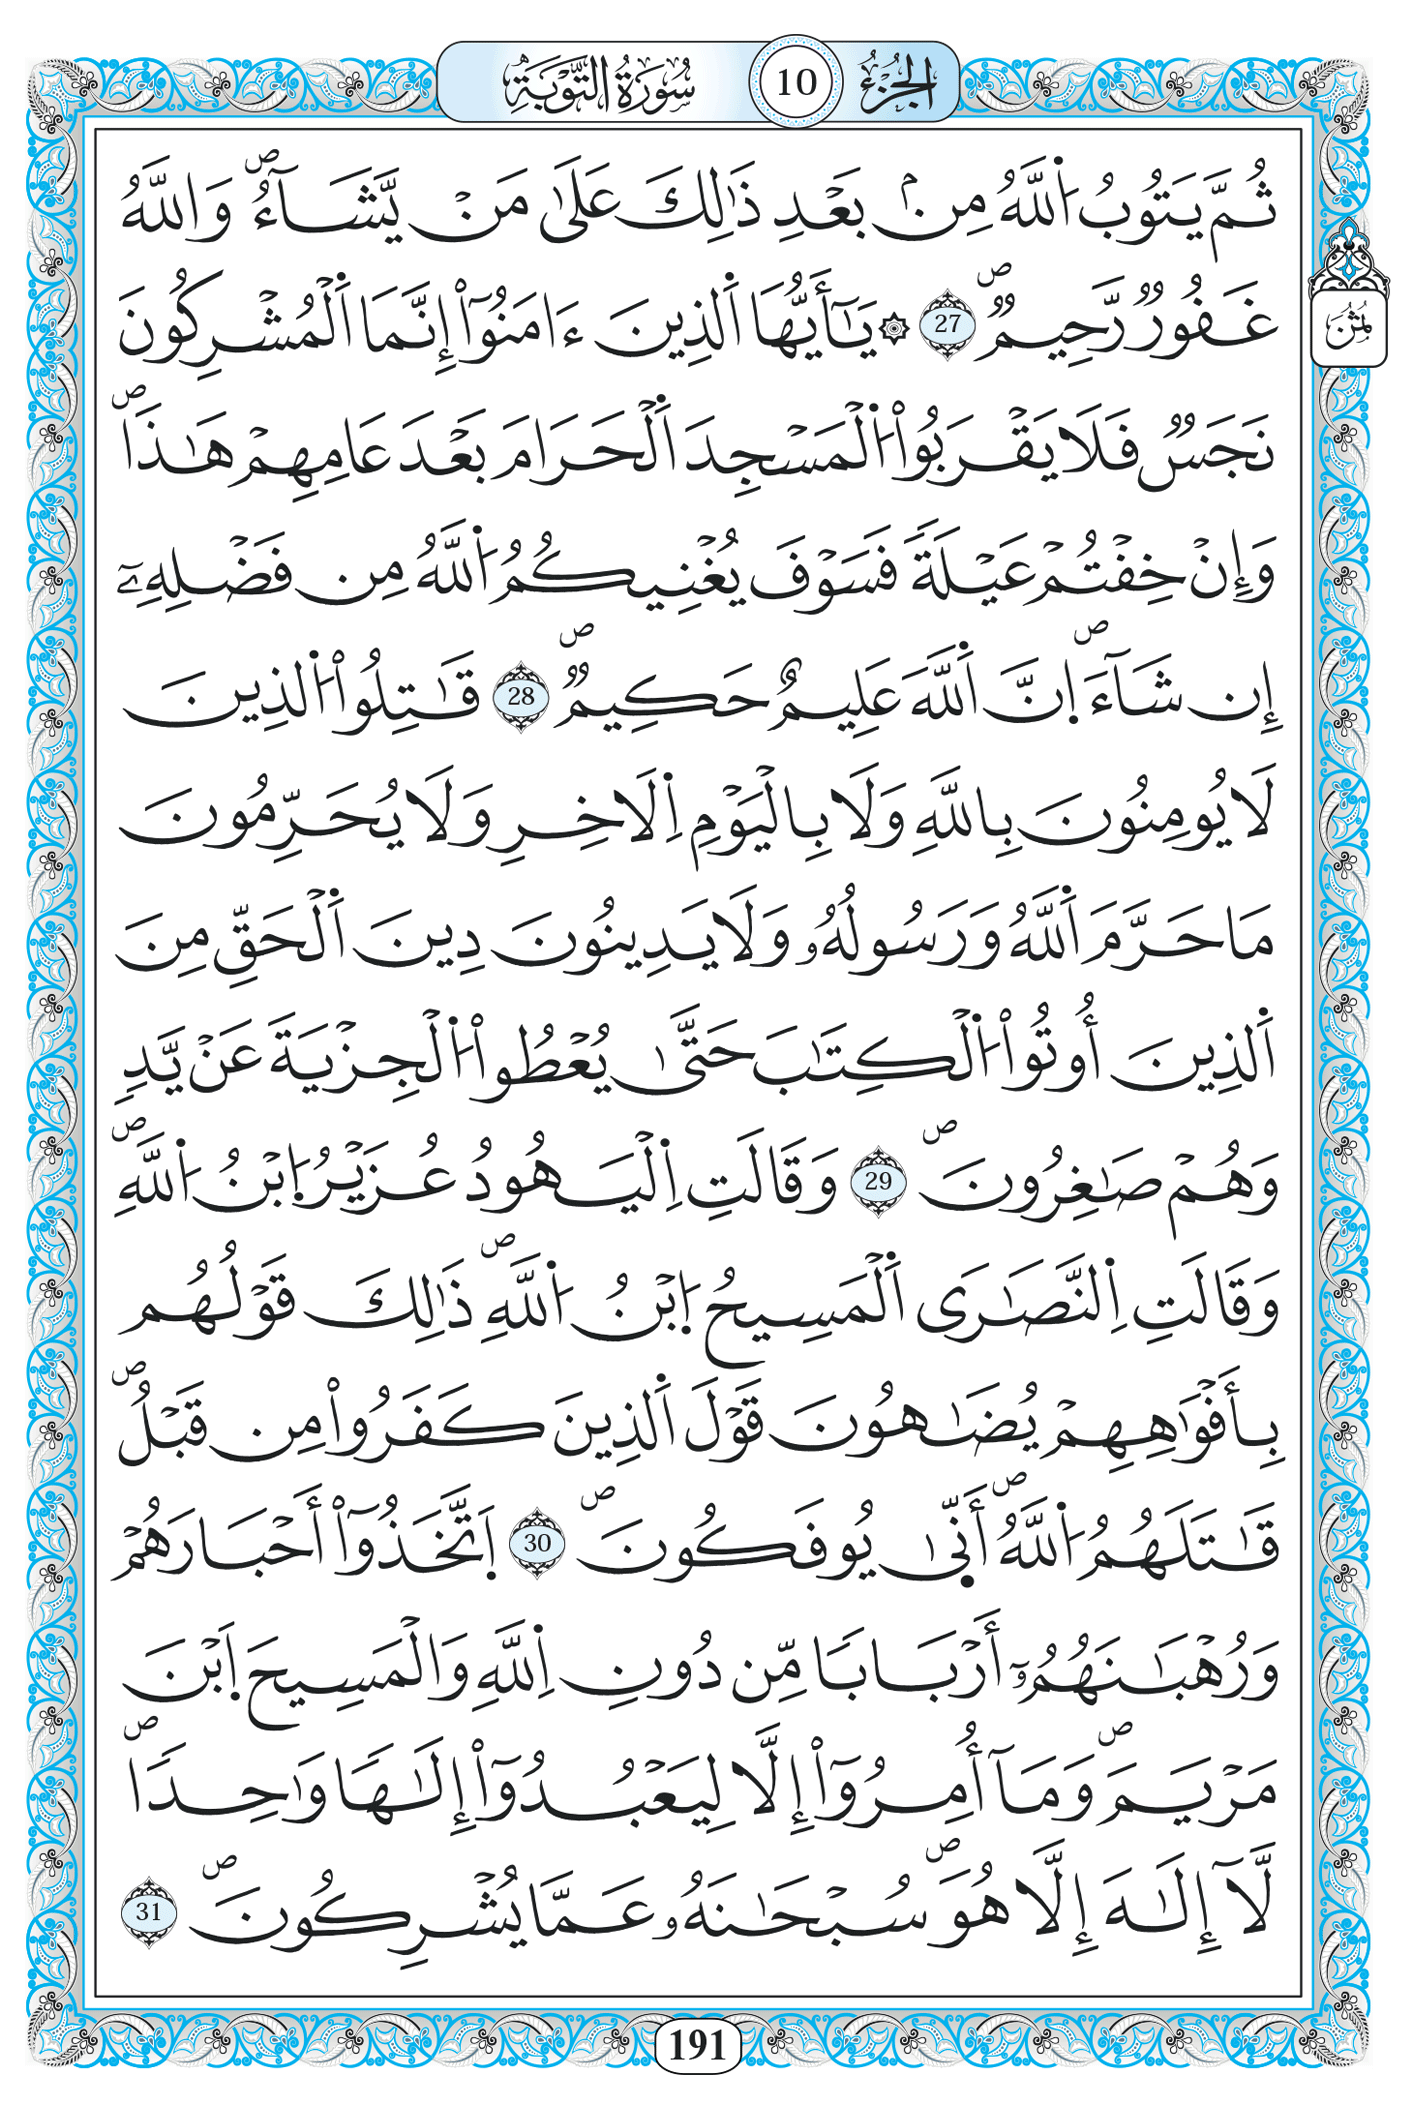 الجزء 10 سورة التوبة
ثُمَّ يَتُوبُ اُ۬للَّهُ مِنۢ بَعْدِ ذَٰلِكَ عَلَىٰ مَنْ يَّشَآءُۖ وَاللَّهُ
غَفُورٞ رَّحِيمٞۖ 27 ۞ يَٰٓأَيُّهَا اَ۬لذِينَ ءَامَنُوٓاْ إِنَّمَا اَ۬لْمُشْرِكُونَ
ثمن
نَجَسٞ فَلَا يَقْرَبُواْ اُ۬لْمَسْجِدَ اَ۬لْحَرَامَ بَعْدَ عَامِهِمْ هَٰذَاۖ
وَإِنْ خِفْتُمْ عَيْلَةٗ فَسَوْفَ يُغْنِيكُمُ اُ۬للَّهُ مِن فَضْلِهِۦٓ
إِن شَآءَۖ اِنَّ اَ۬للَّهَ عَلِيمٌ حَكِيمٞۖ 28 قَٰتِلُواْ اُ۬لذِينَ
لَا يُومِنُونَ بِاللَّهِ وَلَا بِالْيَوْمِ اِ۬لَاخِرِ وَلَا يُحَرِّمُونَ
مَا حَرَّمَ اَ۬للَّهُ وَرَسُولُهُۥ وَلَا يَدِينُونَ دِينَ اَ۬لْحَقِّ مِنَ
اَ۬لذِينَ أُوتُواْ اُ۬لْكِتَٰبَ حَتَّىٰ يُعْطُواْ اُ۬لْجِزْيَةَ عَنْ يَّدٖ
وَهُمْ صَٰغِرُونَۖ 29 وَقَالَتِ اِ۬لْيَهُودُ عُزَيْرُ اُ۪بْنُ اُ۬للَّهِۖ
وَقَالَتِ اِ۬لنَّصَٰرَى اَ۬لْمَسِيحُ اُ۪بْنُ اُ۬للَّهِۖ ذَٰلِكَ قَوْلُهُم
بِأَفْوَٰهِهِمْ يُضَٰهُونَ قَوْلَ اَ۬لذِينَ كَفَرُواْ مِن قَبْلُۖ
قَٰتَلَهُمُ اُ۬للَّهُۖ أَنَّىٰ يُوفَكُونَۖ 30 اَ۪تَّخَذُوٓاْ أَحْبَارَهُمْ
وَرُهْبَٰنَهُمُۥٓ أَرْبَاباٗ مِّن دُونِ اِ۬للَّهِ وَالْمَسِيحَ اَ۪بْنَ
مَرْيَمَۖ وَمَآ أُمِرُوٓاْ إِلَّا لِيَعْبُدُوٓاْ إِلَٰهاٗ وَٰحِداٗۖ
لَّآ إِلَٰهَ إِلَّا هُوَۖ سُبْحَٰنَهُۥ عَمَّا يُشْرِكُونَۖ 31
191